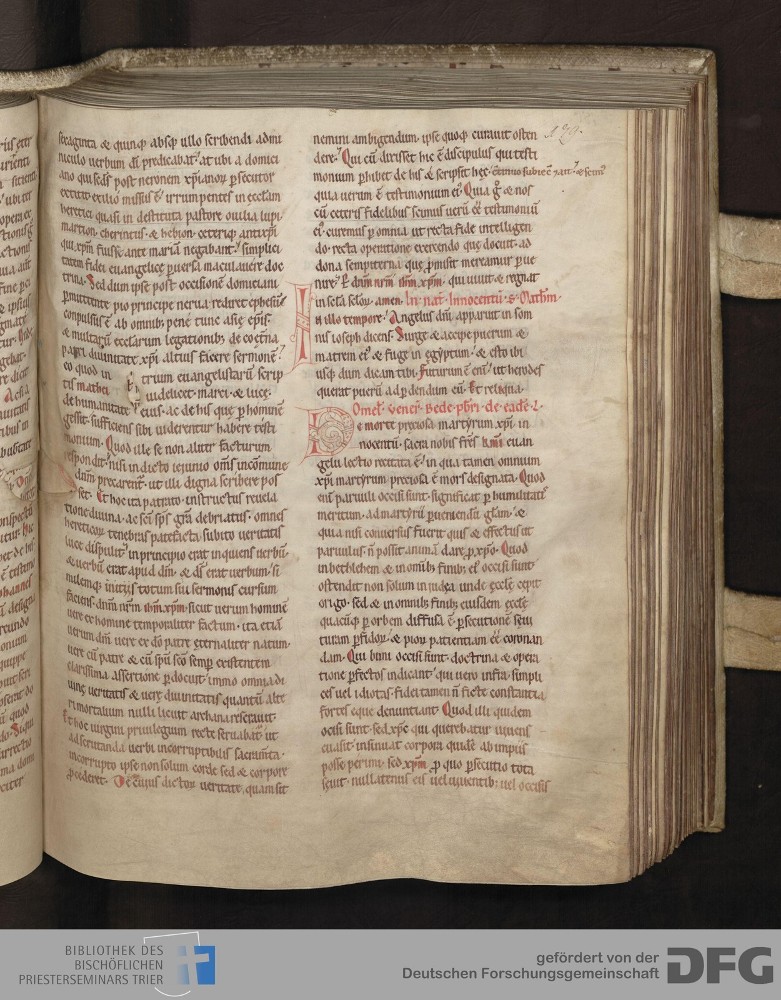 sexaginta & quinq; absq; ullo scribendi admi
niculo uerbum di predicabat. at ubi a domici
ano qui scds post neronem xpianoꝝ psecutor
exilio missus ē. irrumpentes in ecclam
heretici quasi in destituta pastore ouilia lupi
martion. cherintus. & hebion. ceteriq; antixpi
qui xpm fuisse ante mariā negabant. simplici
tatem fidei euangelice puersa maculauere doc
trina. Sed dum ipse post occisionē domiciani
pmittente pio principe nerua rediret ephesū.
conpulsus ē ab omnib; pene tunc asie epis.
& multaꝝ ecclarum legationib; de coetna
patri diuinitate xpi altius facere sermonē.
eo quod in trium euangelistarū scrip
tis mathei uidelicet. marci. & luce.
de humanitate eius. ac de his que p hominē
gessit. sufficiens sibi uiderentur habere testi
monium. Quod ille se non aliter facturum
respondit. nisi indicto ieiunio oms incōmune
dnm precarent. ut illi digna scribere pos
set. Et hoc ita patrato. instructus reuela
tione diuina. ac sci sps gra debriatus. omnes
hereticoꝝ tenebras patefacta subito ueritatis
luce dispulit. in principio erat inquiens uerbū.
& uerbū erat apud dm. & ds erat uerbum. si
milemq; initijs totum sui sermonis cursum
faciens. dnm nrm ihm xpm. sicut uerum hominē
uere ex homine temporaliter factum. ita etiā
uerum dm uere ex do patre eternaliter natum.
uere cū patre & cū spu sco semp existentem
clarissima assertione pdocuit. immo omnia di
uine ueritatis & uere diuinitatis quantū alte
ri mortalium nulli licuit archana reserauit.
Et hoc uirgini priuilegium recte seruabat. ut
ad scrutanda uerbi incorruptibilis sacramta.
incorrupto ipse non solum corde sed & corpore
pcederet. De cuius dictoꝝ ueritate. quam sit
nemini ambigendum. ipse quoq; curauit osten
dere. Qui cū dixisset hic ē discipulus qui testi
monium phibet de his & scripsit hec.
quia uerum ē testimonium ei. Quia & nos
cū ceteris fidelibus scimus uerū ee testimoniū
ei. curemus p omnia ut recta fide intelligen
do. recta operatione exercendo que docuit. ad
dona sempiterna que pmisit mereamur pue
nire. p dnm nrm ihm xpm. qui uiuit & regnat
in scla scloꝝ. amen. In nat. Innocentū. s. Mathm.
In illo tempore. Angelus dni apparuit in som
nis ioseph dicens. Surge & accipe puerum &
matrem ei. & fuge in egyptum. & esto ibi
usq; dum dicam tibi. Futurum ē eni. ut herodes
querat puerū ad pdendum eū. Et reliqua.
Omel. vener. Bede. pbri. de eade. l.
De morte preciosa martyrum xpi. in
nocentū. sacra nobis frēs kmi euan
gelii lectio recitata ē. in qua tamen omnium
xpi martyrum preciosa ē mors designata. Quod
eni paruuli occisi sunt. significat p humilitatis
meritum. ad martyrii pueniendū glam. &
quia nisi conuersus fuerit quis & effectus ut
paruulus. n possit animā dare p xpo. Quod
in bethleem & in omnib; finib; ei occisi sunt.
ostendit non solum in iudea unde eccle cepit
origo. sed & in omnib; finib; eiusdem eccle
quacūq; p orbem diffusa ē. psecutionē seui
turam pfidoꝝ. & pioꝝ patientiam ee coronan
dam. Qui bimi occisi sunt. doctrina & opera
tione pfectos indicant. qui uero infra. simpli
ces uel idiotas. fidei tamen n ficte constantia
fortes eque denuntiant. Quod illi quidem
occisi sunt. sed xpc qui querebatur uiuens
euasit. insinuat corpora quidē ab impiis
posse perimi. sed xpm p quo psecutio tota
seuit. nullatenus eis uel uiuentib; uel occisis
BIBLIOTHEK DES
BISCHÖFLICHEN
PRIESTERSEMINARS TRIER
gefördert von der
Deutschen Forschungsgemeinschaft
DFG